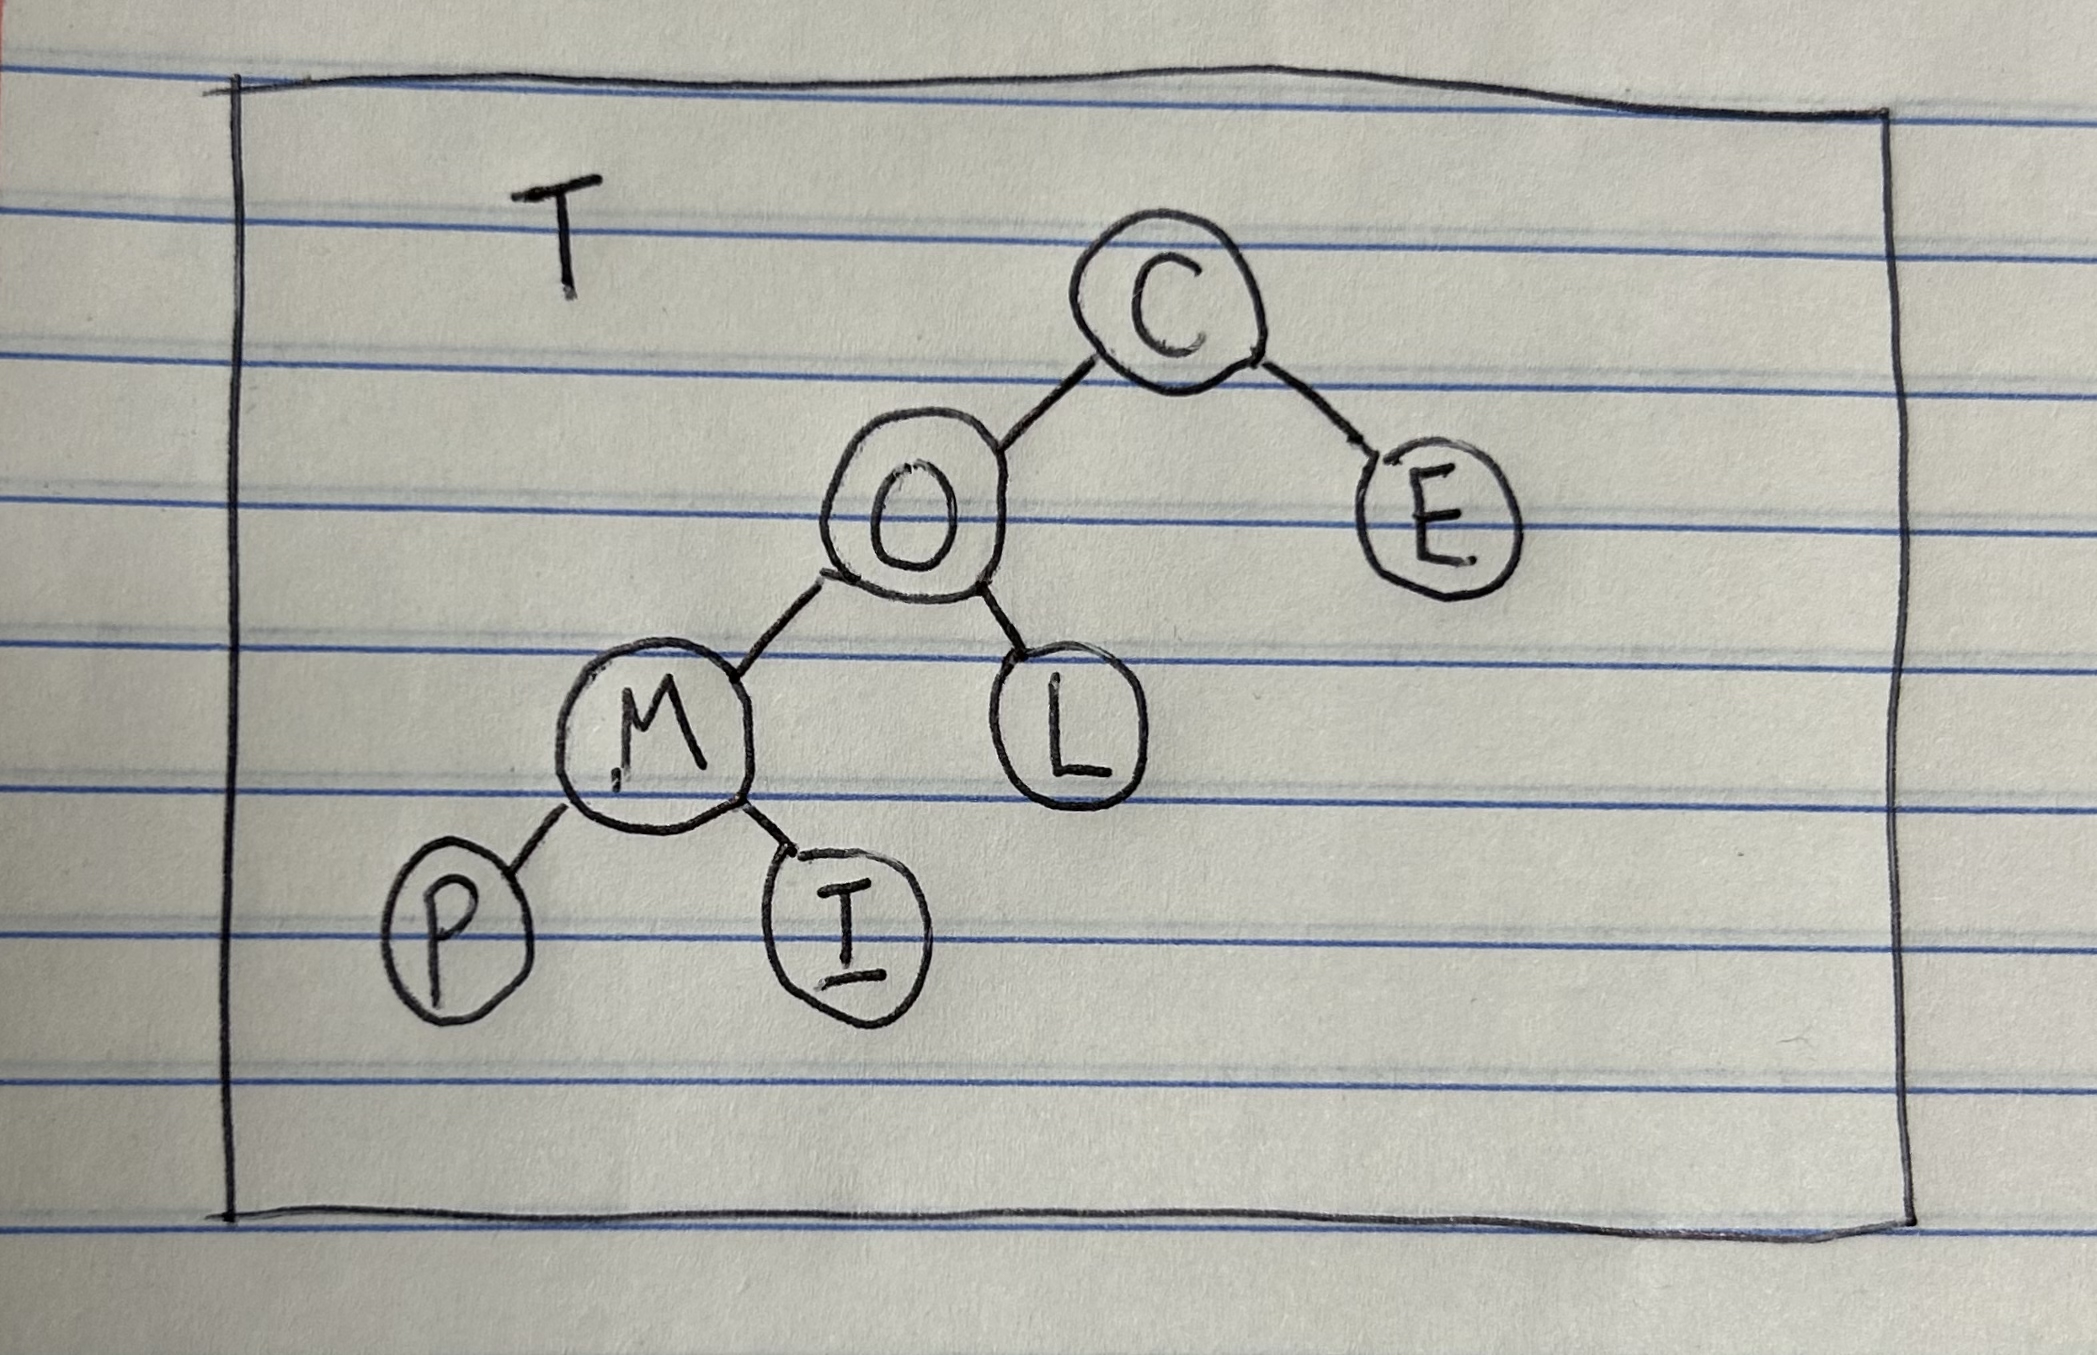 T
C
O E
M L
P I